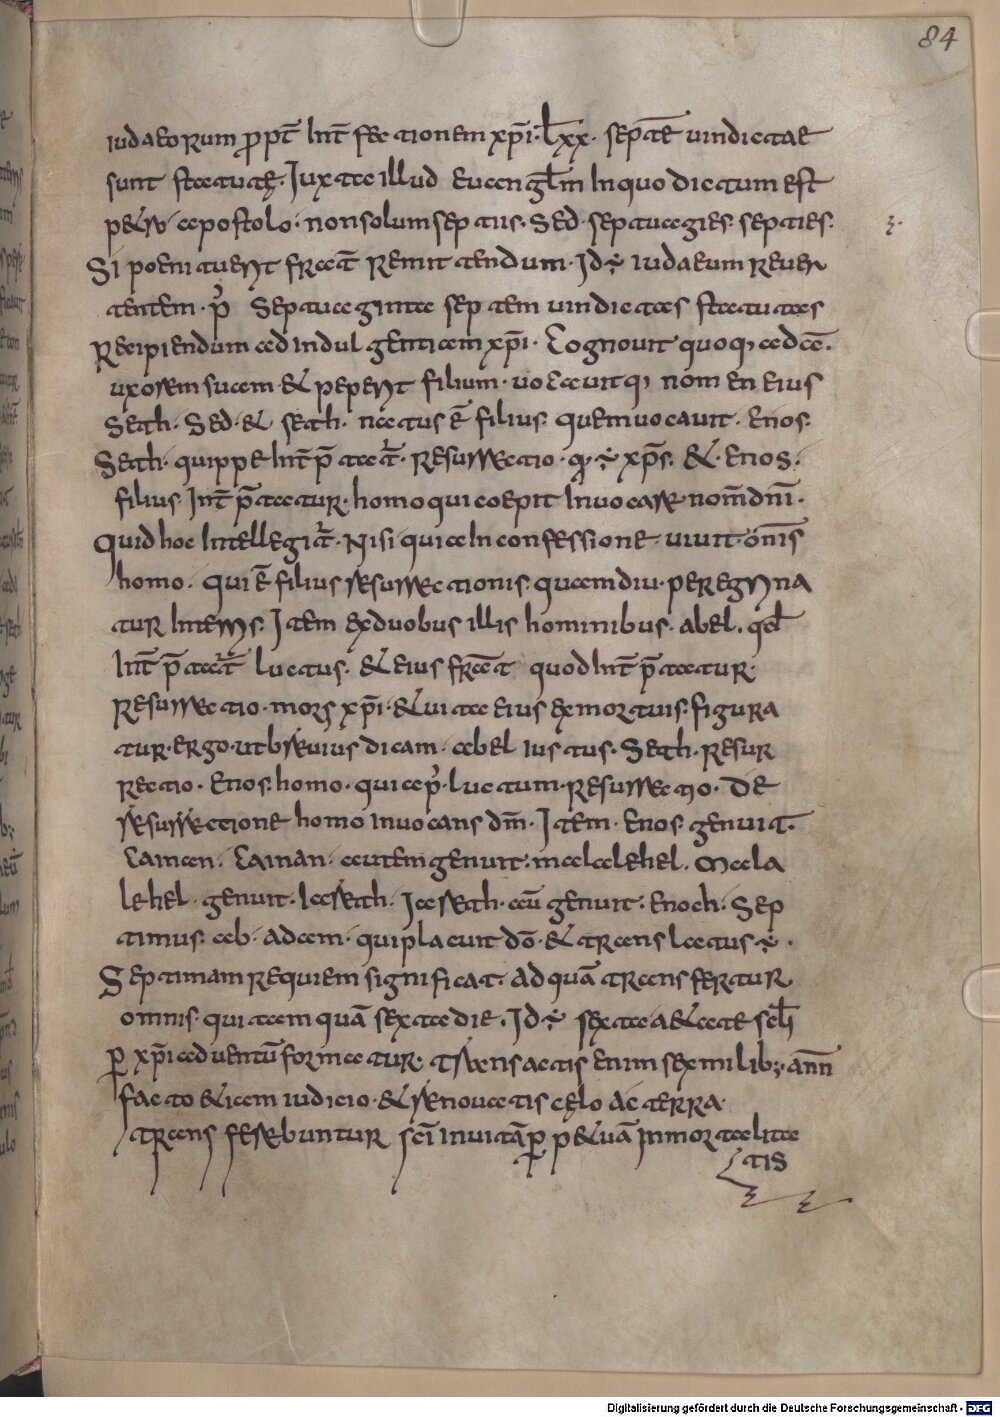 84
iudaeorum ꝓpt̄ Int̄fectionem xp̄i· lxx· septē uindictae
sunt statutę· Iuxta illud euangl̄m In quo dictum est
petro apostolo· non solum septiis· Sed· septuagies· septies·
Si poenituerit fratr̄ remittendum· Id ÷ iudaeum reuer
tentem· p̄ Septuaginta septem uindictas statutas
Recipiendum ad indulgentiam xp̄i· Cognouit quoq; adā
uxorem suam· & peperit filium· uocauitq; nomen eius
Seth· Sed· & seth· natus ē filius· quem uocauit· Enos·
Seth· quippe Int̄p̄tat̄· Resurrectio· q· ÷ xp̄s· &· Enos·
filius· Int̄p̄tatur· homo qui coepit Inuocare nom̄ dn̄i·
Quid hoc Intellegit̄· Nisi quia In confessione· uiuit om̄s
homo· qui ē filius resurrectionis· quamdiu· peregrina
tur In terris· Item ex duobus illis hominibus· abel· qd̄
Int̄p̄tat̄ luctus· & eius frat̄ quod Int̄p̄tatur·
Resurrectio· mors xp̄i· & uita eius ex mortuis· figura
tur· ergo· ut breuius dicam· abel iustus· Seth· resur
rectio· Enos· homo· quia p̄· luctum· resurrectio· De
resurrectione homo inuocans dm̄· Item· Enos· genuit·
Cainan· Cainan· autem genuit· malalehel· Mala
lehel· genuit· Iareth· Iareth· aū genuit· Enoch· Sep
timus· ab· adam· qui placuit dō· & translatus ÷·
Septimam requiem significat· ad quā transfertur
omnis· qui tam quā sexta die· Id ÷ sexta aetate scl̄i
ꝑ xp̄i aduentū formatur· transactis enim sex milib; ann̄
facto etiam iudicio· & renouatis cęlo ac terra·
transferebuntur sc̄i in uitā ꝑpetuā Inmortalita
tis
Digitalisierung gefördert durch die Deutsche Forschungsgemeinschaft - DFG